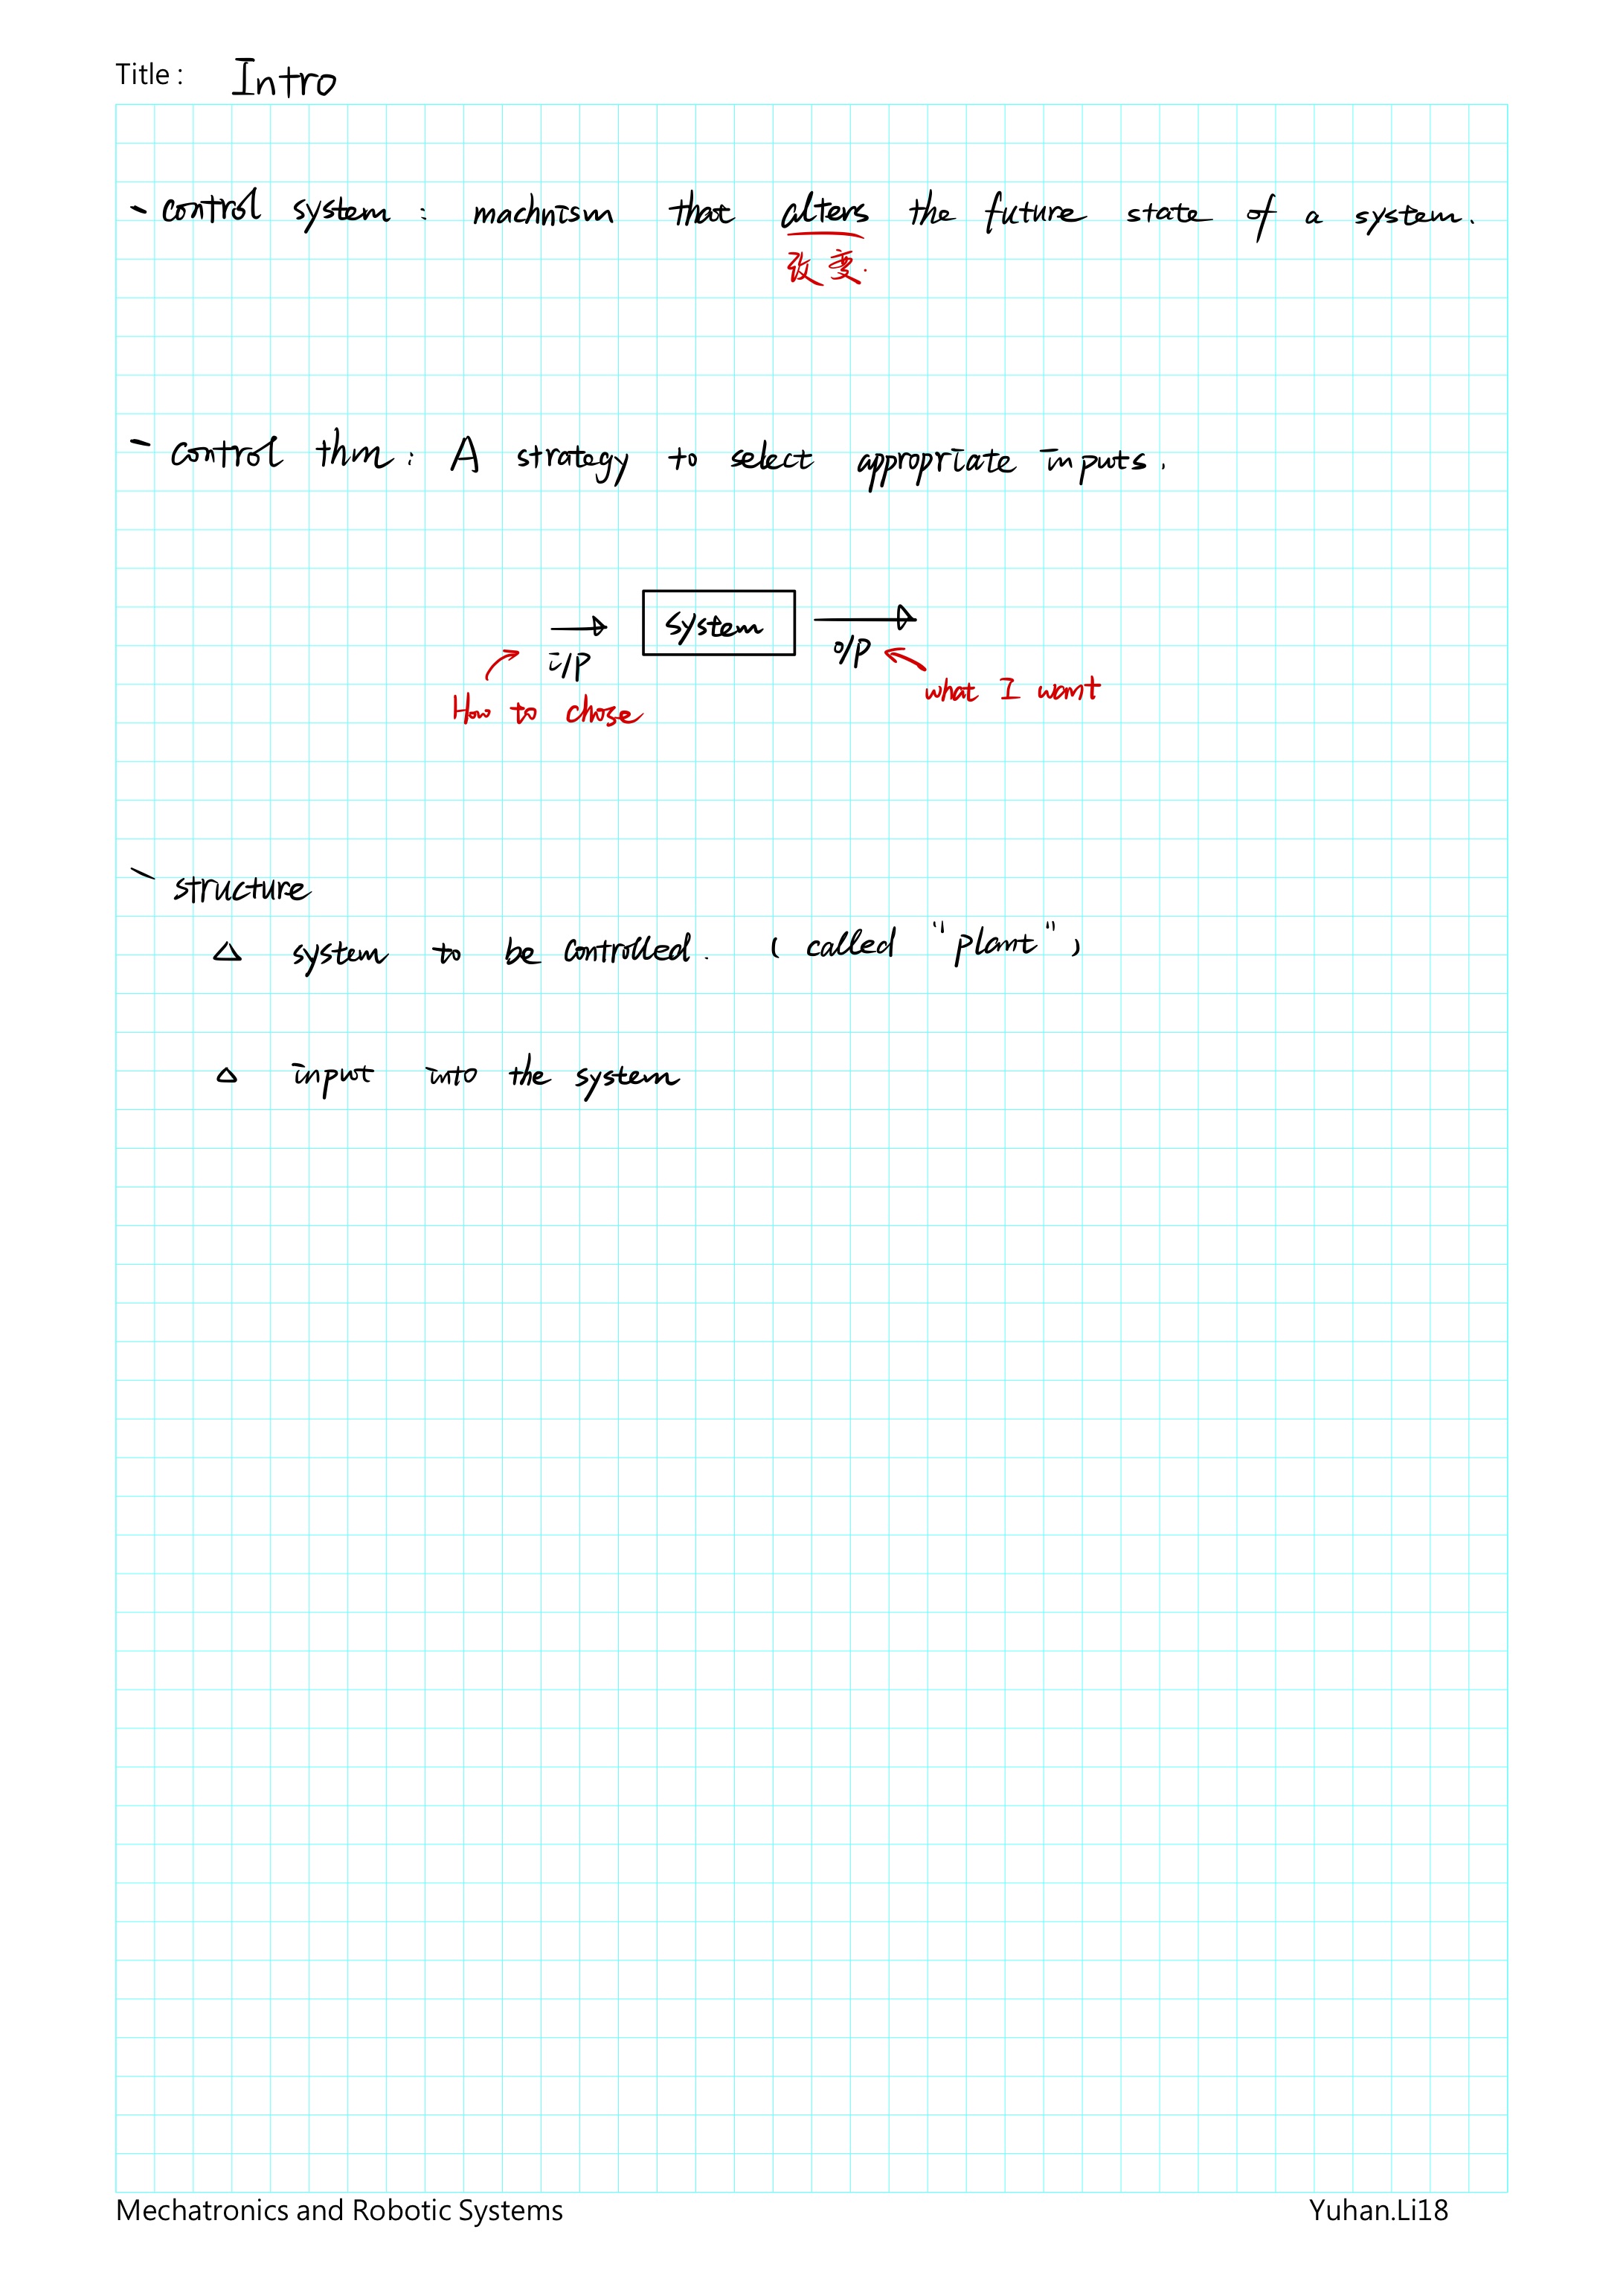 Title : Intro
- control system : machnism that alters the future state of a system.
改变.
- control thm : A strategy to select appropriate inputs.
system
i/p
o/p
what I want
How to chose
- structure
△ system to be controlled. ( called "plant" )
△ input into the system
Mechatronics and Robotic Systems
Yuhan.Li18